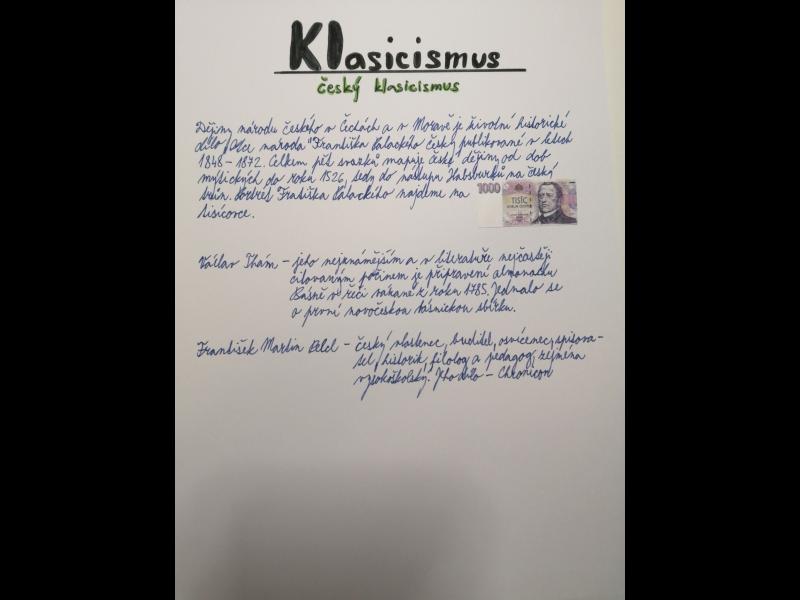 Klasicismus
český klasicismus
Dějiny národu českého v Čechách a v Moravě je životní historické
dílo Otce národa "Františka Palackého česky publikované v letech
1848 - 1872. Celkem pět svazků mapuje české dějiny od dob
mytických do roku 1526, tedy do nástupu Habsburků na český
trůn. Portrét Františka Palackého najdeme na
tisícovce.
1000
TISÍC
KORUN ČESKÝCH
Václav Thám - jeho nejznámějším a v literatuře nejčastěji
citovaným počinem je připravení almanachu
Básně v řeči vázané z roku 1785. Jednalo se
o první novočeskou básnickou sbírku.
František Martin Pelcl - český vlastenec, buditel, osvícenec, spisova-
tel, historik, filolog a pedagog, zejména
vysokoškolský. Jho dílo - Chronicon